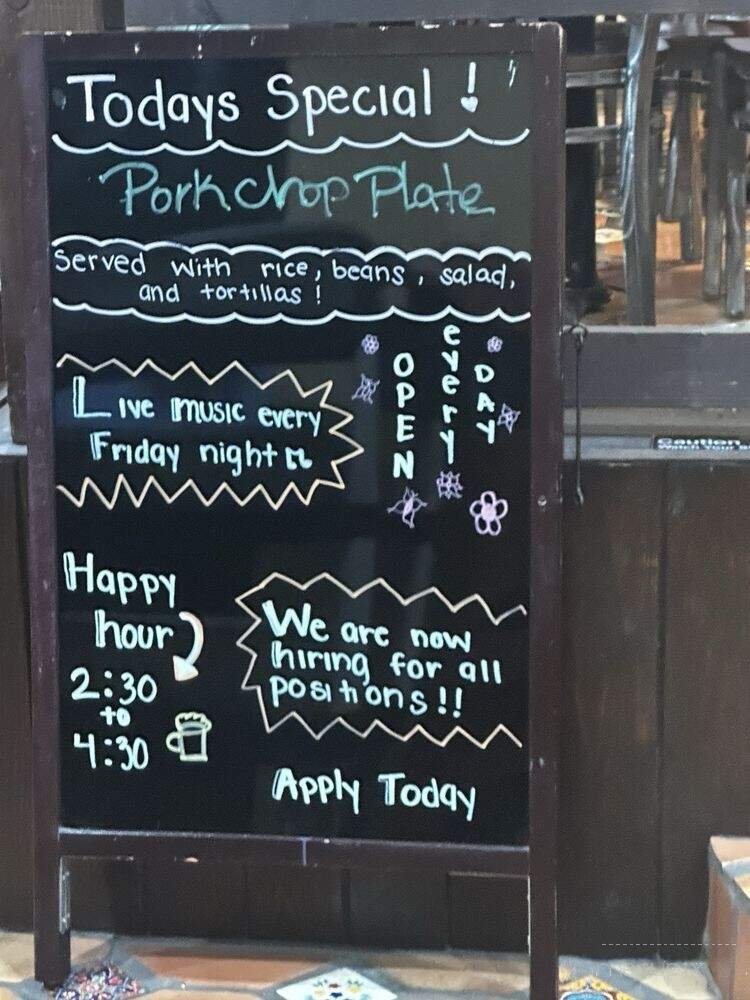 Todays Special!
Pork chop Plate
Served with rice, beans, salad,
and tortillas!
Live music every
Friday night
OPEN
every
DAY
Happy
hour
2:30
to
4:30
We are now
hiring for all
positions!!
Apply Today
Caution
Watch Your